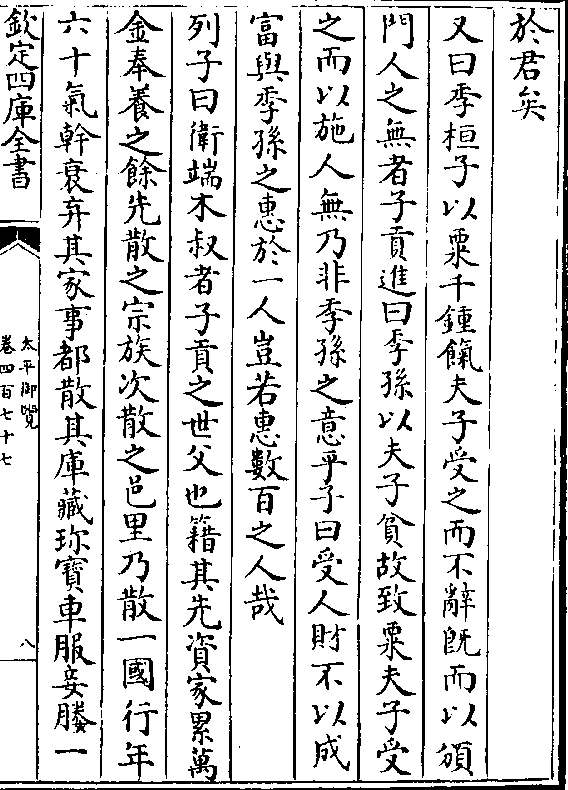 於君矣
又曰季桓子以粟千鍾餼夫子受之而不辭旣而以頒
門人之無者子貢進曰季孫以夫子貧故致粟夫子受
之而以施人無乃非季孫之意乎子曰受人財不以成
富與季孫之惠於一人豈若惠數百之人哉
列子曰衛端木叔者子貢之世父也籍其先資家累萬
金奉養之餘先散之宗族次散之邑里乃散一國行年
六十氣幹衰弃其家事都散其庫藏珎寶車服妾媵一
欽定四庫全書
太平御覽
卷四百七十七
八